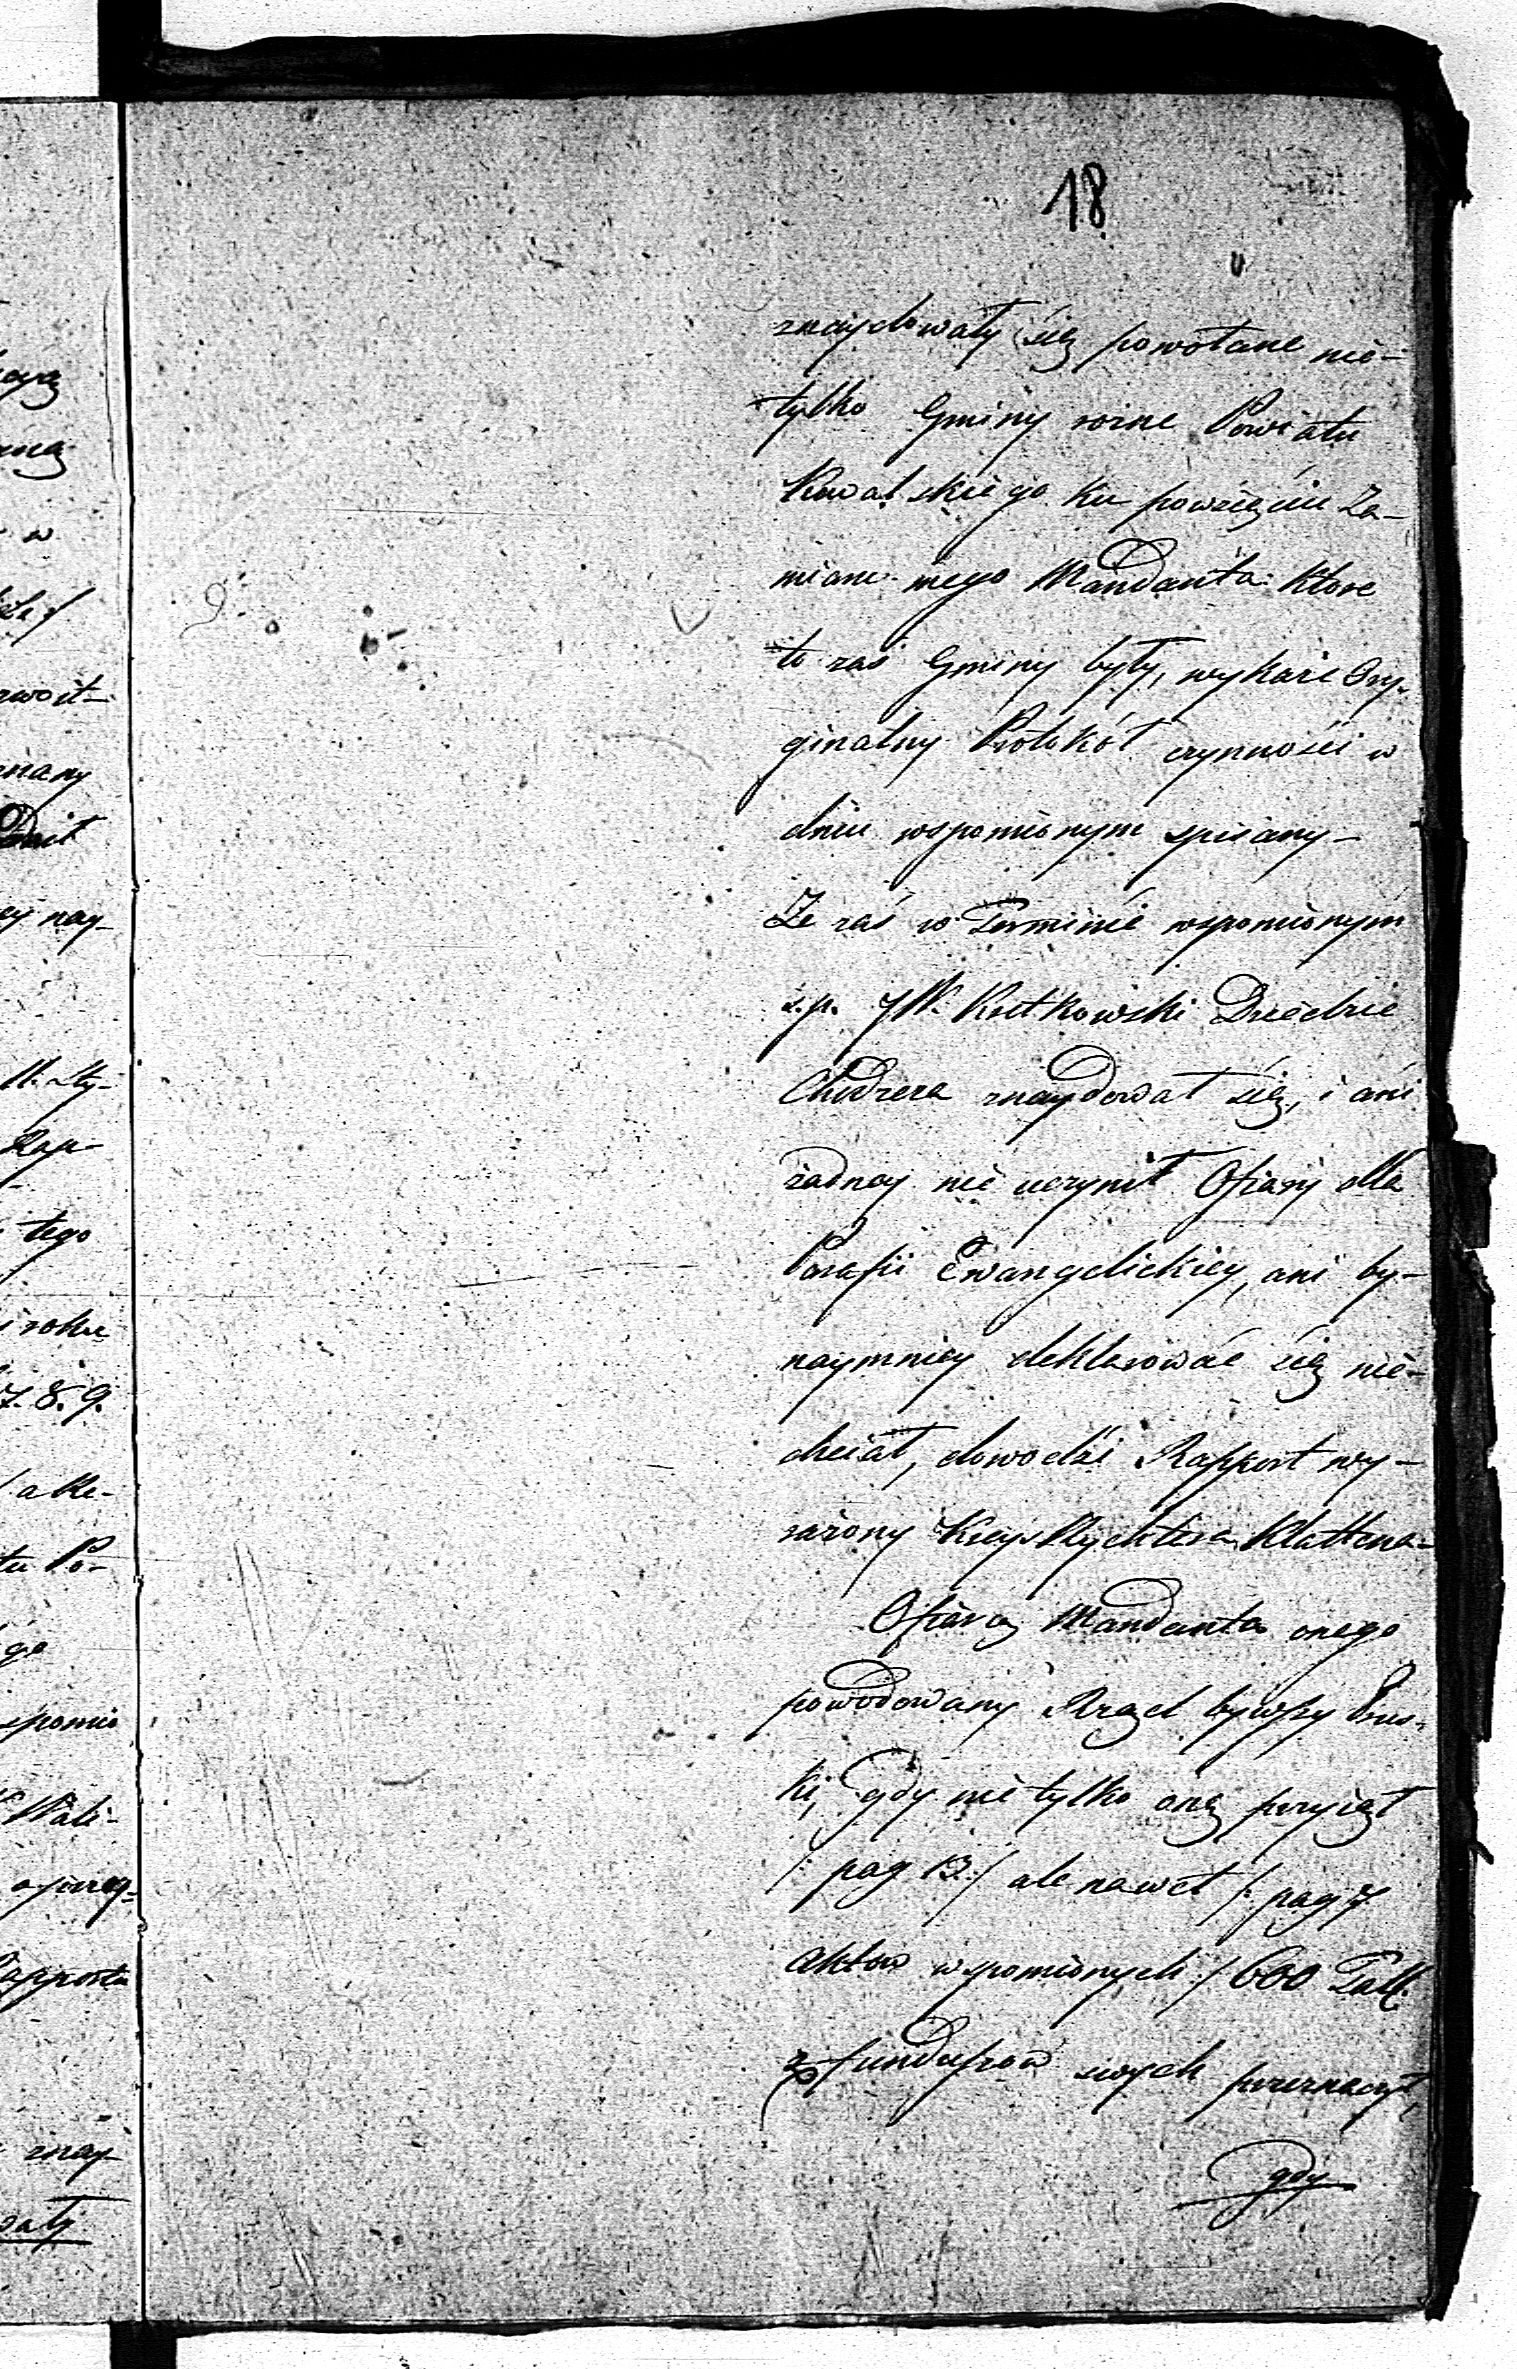 18
znaydowały się powołane nie-
tylko Gminy rożne Powiatu
Kowalskiego ku powzięciu Za-
miaru mego Mandanta: ktore
to zaś Gminy były, wykaże Ory-
ginalny Protokół czynności w
dniu wspomionym spisany-
Że zaś w Terminie wspomionym
s.p. JW. Kretkowski Dziedzic
Chodzera znaydował się, i ani
żadney nie uczynił Ofiary dla
Parafii Ewangelickiey, ani by-
naymniey deklarować się nie-
chciał, dowodzi Rapport wy-
rażony Kreys Rychtera Klattena-
Ofiarą Mandanta onego
powodowany Rząd bywszy Prus-
ki, gdy nie tylko onę przyiął
/: pag 13:/ ale nawet /: pag 7
aktow wspomionych :/ 600 Tall.
z funduszow swych przeznaczył,
gdy
znany
nay-
Rap-
tego
roku
7. 8. 9.
tu Po-
go
Rapportu
znay-